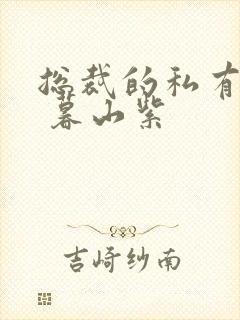 总裁的私有
暮山紫
吉崎纱南